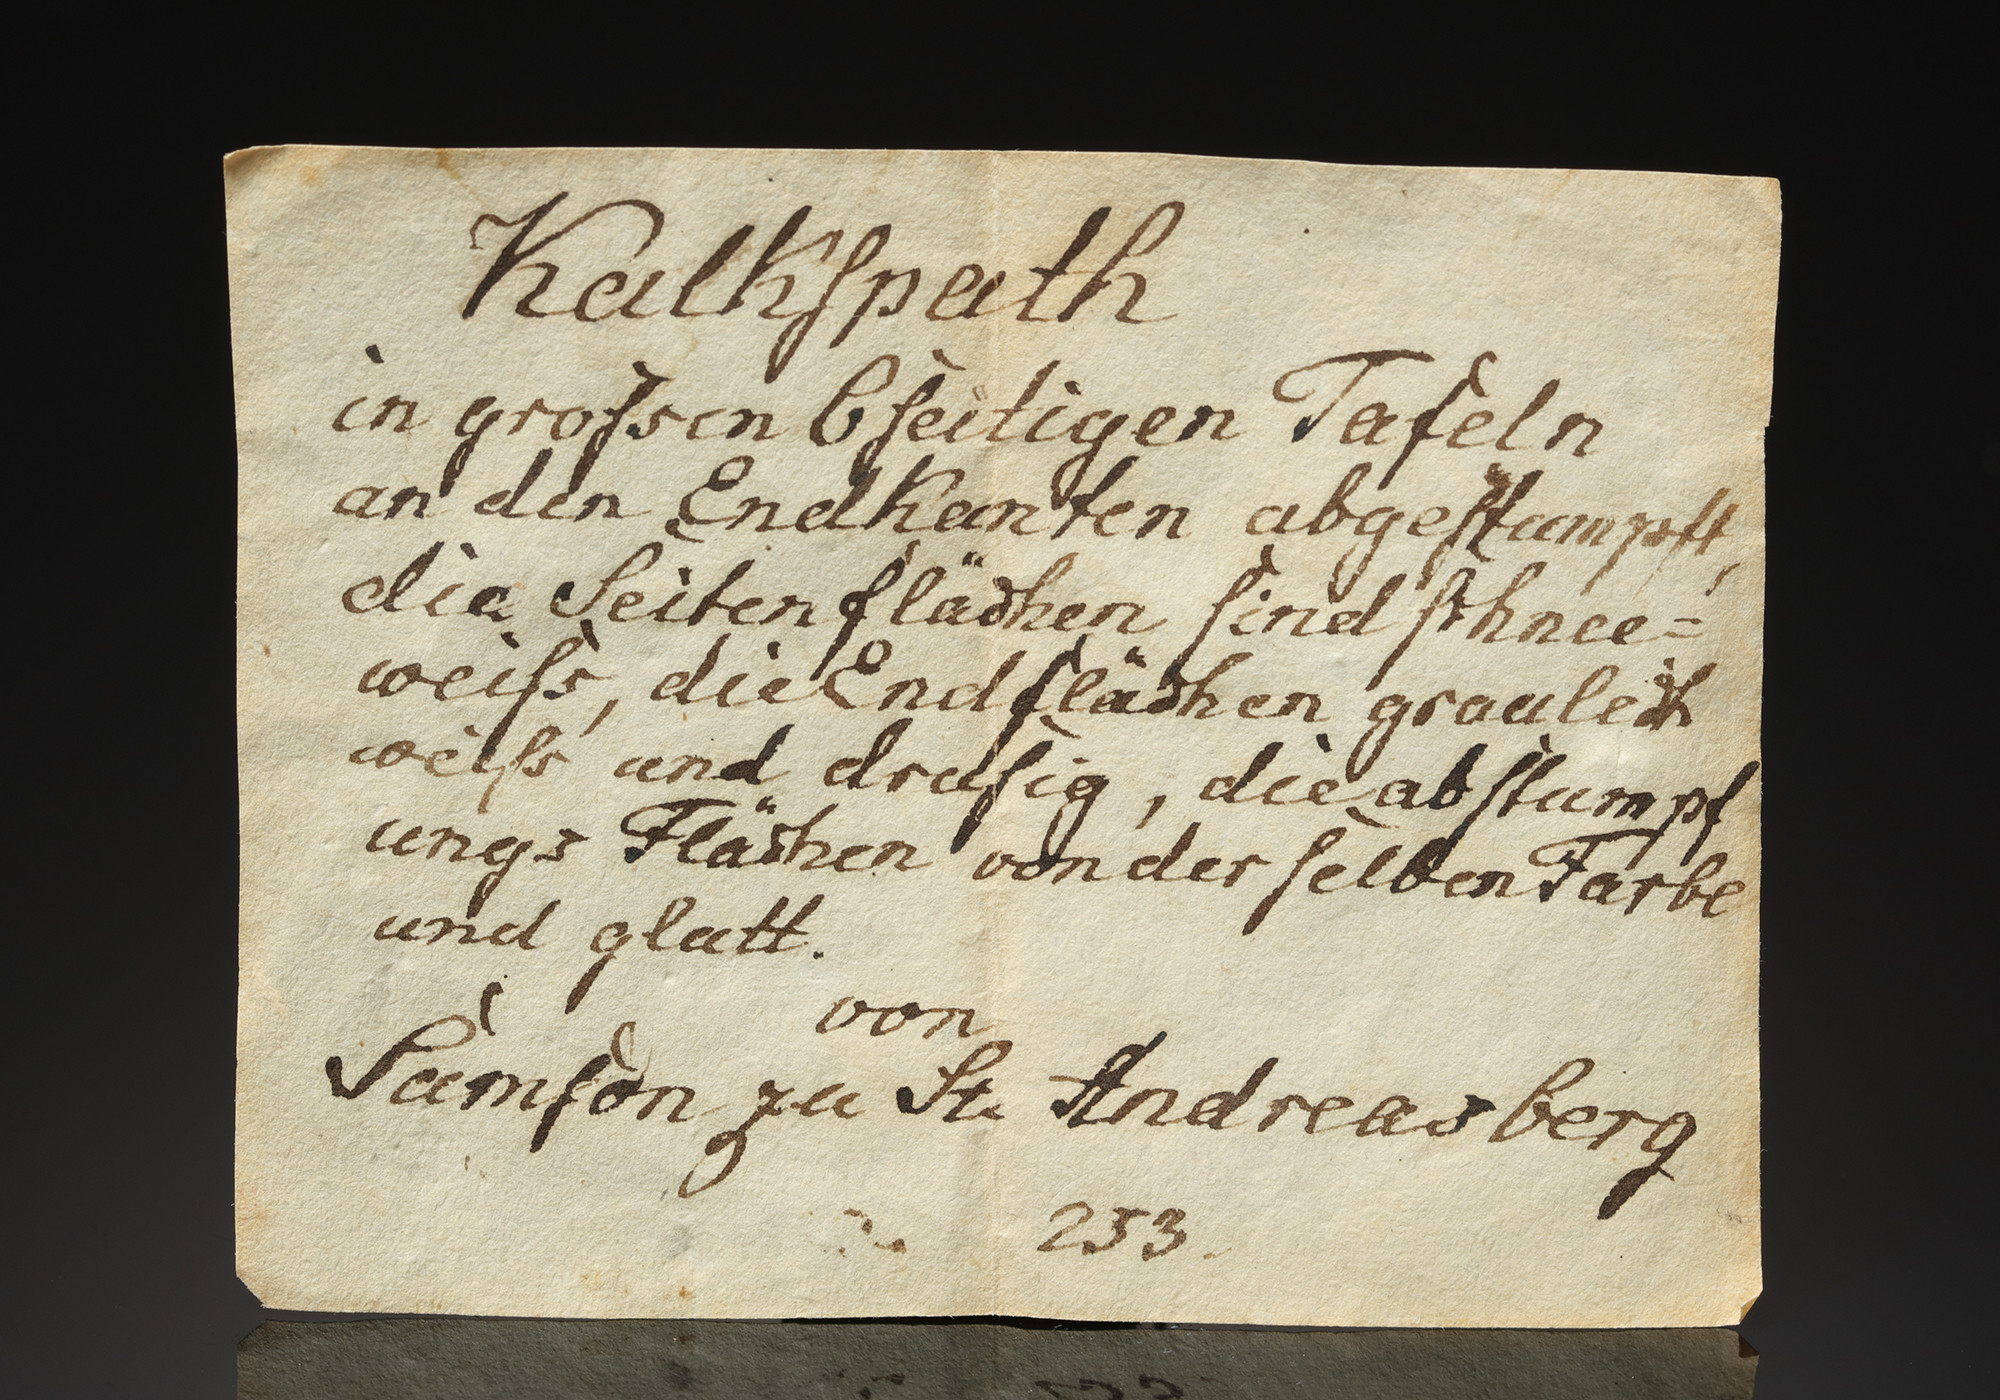 Kalkspath
in grofsen 6seitigen Tafeln
an den Endkanten abgestumpft,
die Seitenflächen sind schnee=
weifs, die Endflächen graulich
weifs und drusig, die abstumpf
ungs Flächen von derselben Farbe
und glatt.
von
Samson zu St. Andreasberg
253.